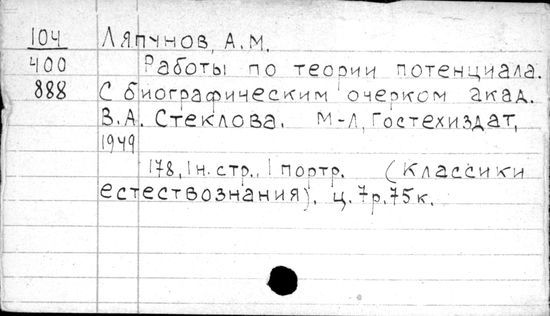 104 Ляпунов, А.М.
400 Работы по теории потенциала.
888 С биографическим очерком акад.
В.А. Стеклова. М-Л, Гостехиздат,
1949
178, 1н. стр., 1 портр. (Классики
естествознания). ц. 7р.75к.